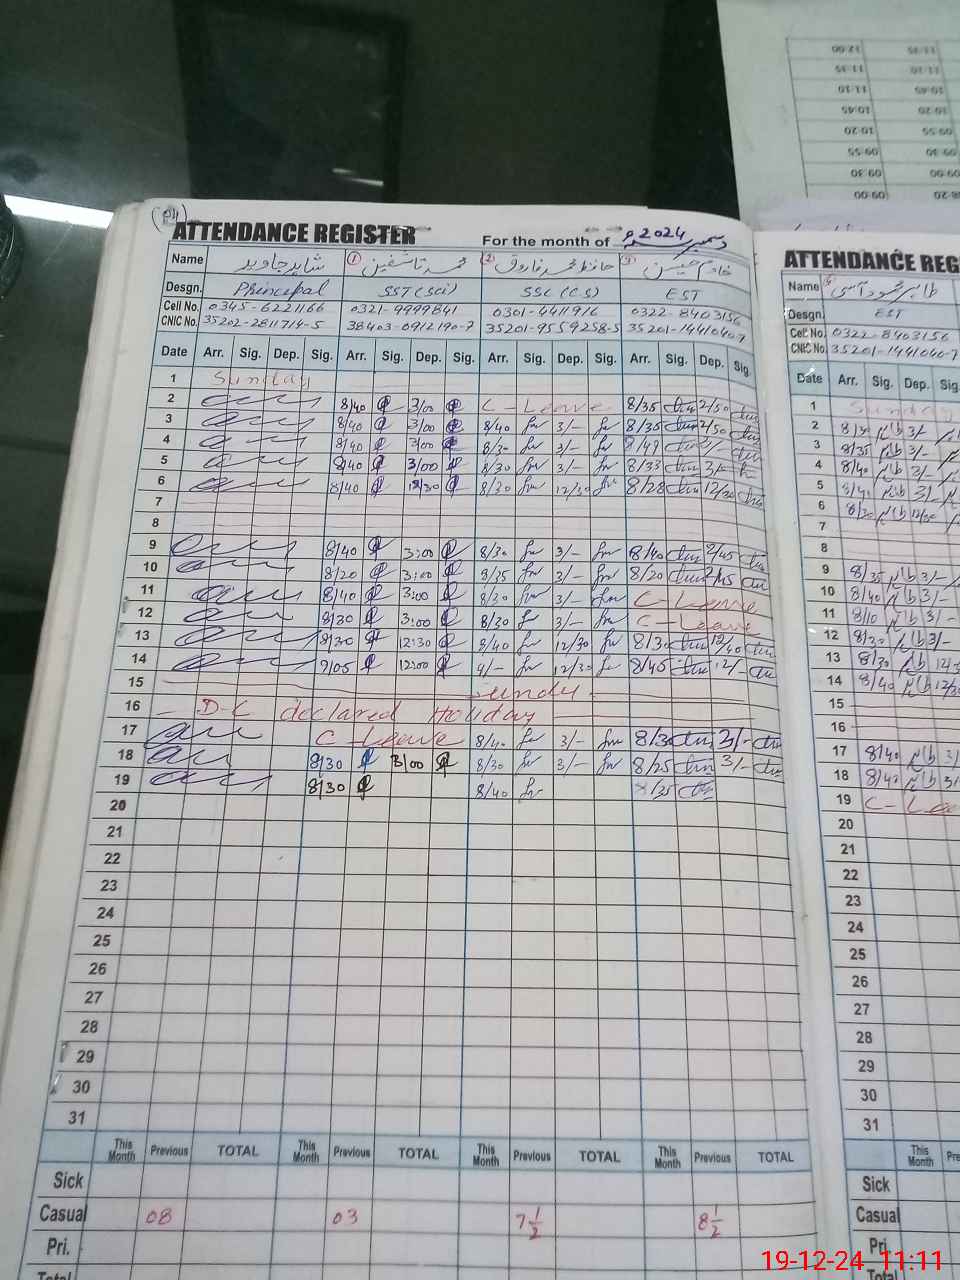 ATTENDANCE REGISTER
For the month of دسمبر 2024
Name شاہد جاوید ① محمد تاشفین ② حافظ محمد فاروق ③ خادم حسین
Desgn. Principal SST (Sci) SSC (CS) EST
Cell No. 0345-6221166 0321-9999841 0301-4411916 0322-8403156
CNIC No. 35202-2811714-5 38403-0912190-7 35201-9559258-5 35201-1441040-7
Date Arr. Sig. Dep. Sig. Arr. Sig. Dep. Sig. Arr. Sig. Dep. Sig. Arr. Sig. Dep. Sig.
1 Sunday
2 8/40 3/00 C-Leave 8/35 2/50
3 8/40 3/00 8/40 3/- 8/35 2/50
4 8/40 3/00 8/30 3/-
5 8/40 3/00 8/30 3/- 8/33 3/-
6 8/40 12/30 8/30 12/30 8/28 12/30
7
8
9 8/40 3:00 8/30 3/- 8/40 2/45
10 8/20 3:00 8/35 3/- 8/20 2/45
11 8/40 3:00 8/30 3/- C-Leave
12 8/30 3:00 8/30 3/- C-Leave
13 8/30 12:30 8/40 12/30 8/30 12/40
14 9/05 12:00 9/- 12/30 8/45 12/-
15
16 D-C declared Holiday
17 C-Leave 8/40 3/- 8/30 3/-
18 8/30 3/00 8/30 3/- 8/25 3/-
19 8/30 8/40 8/35
20
21
22
23
24
25
26
27
28
29
30
31
This Month Previous TOTAL This Month Previous TOTAL This Month Previous TOTAL This Month Previous TOTAL
Sick
Casual 08 03 7 1/2 8 1/2
Pri.
Total
ATTENDANCE REG
Name
Desgn. EST
Cell No. 0322-8403156
CNIC No. 35201-1441040-7
Date Arr. Sig. Dep. Sig.
1 Sunday
2 8/30 3/-
3 8/35 3/-
4 8/40 3/-
5 8/40 3/-
6 8/30 12/30
7
8
9 8/35 3/-
10 8/40 3/-
11 8/10 3/-
12 8/30 3/-
13 8/30
14 8/40 12/30
15
16
17 8/40
18 8/40
19 C-Lea
20
21
22
23
24
25
26
27
28
29
30
31
This Month Pre
Sick
Casual
Pri.
Total
12:00 11:35
11:35 11:10
11:10 10:45
10:45 10:20
10:20 09:55
09:55 09:30
09:30 09:00
09:00 08:20
19-12-24 11:11